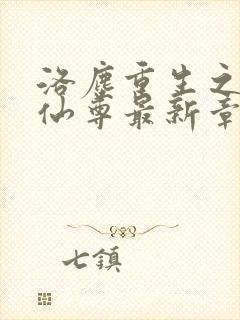 洛塵重生之
仙尊最新章
七鎮